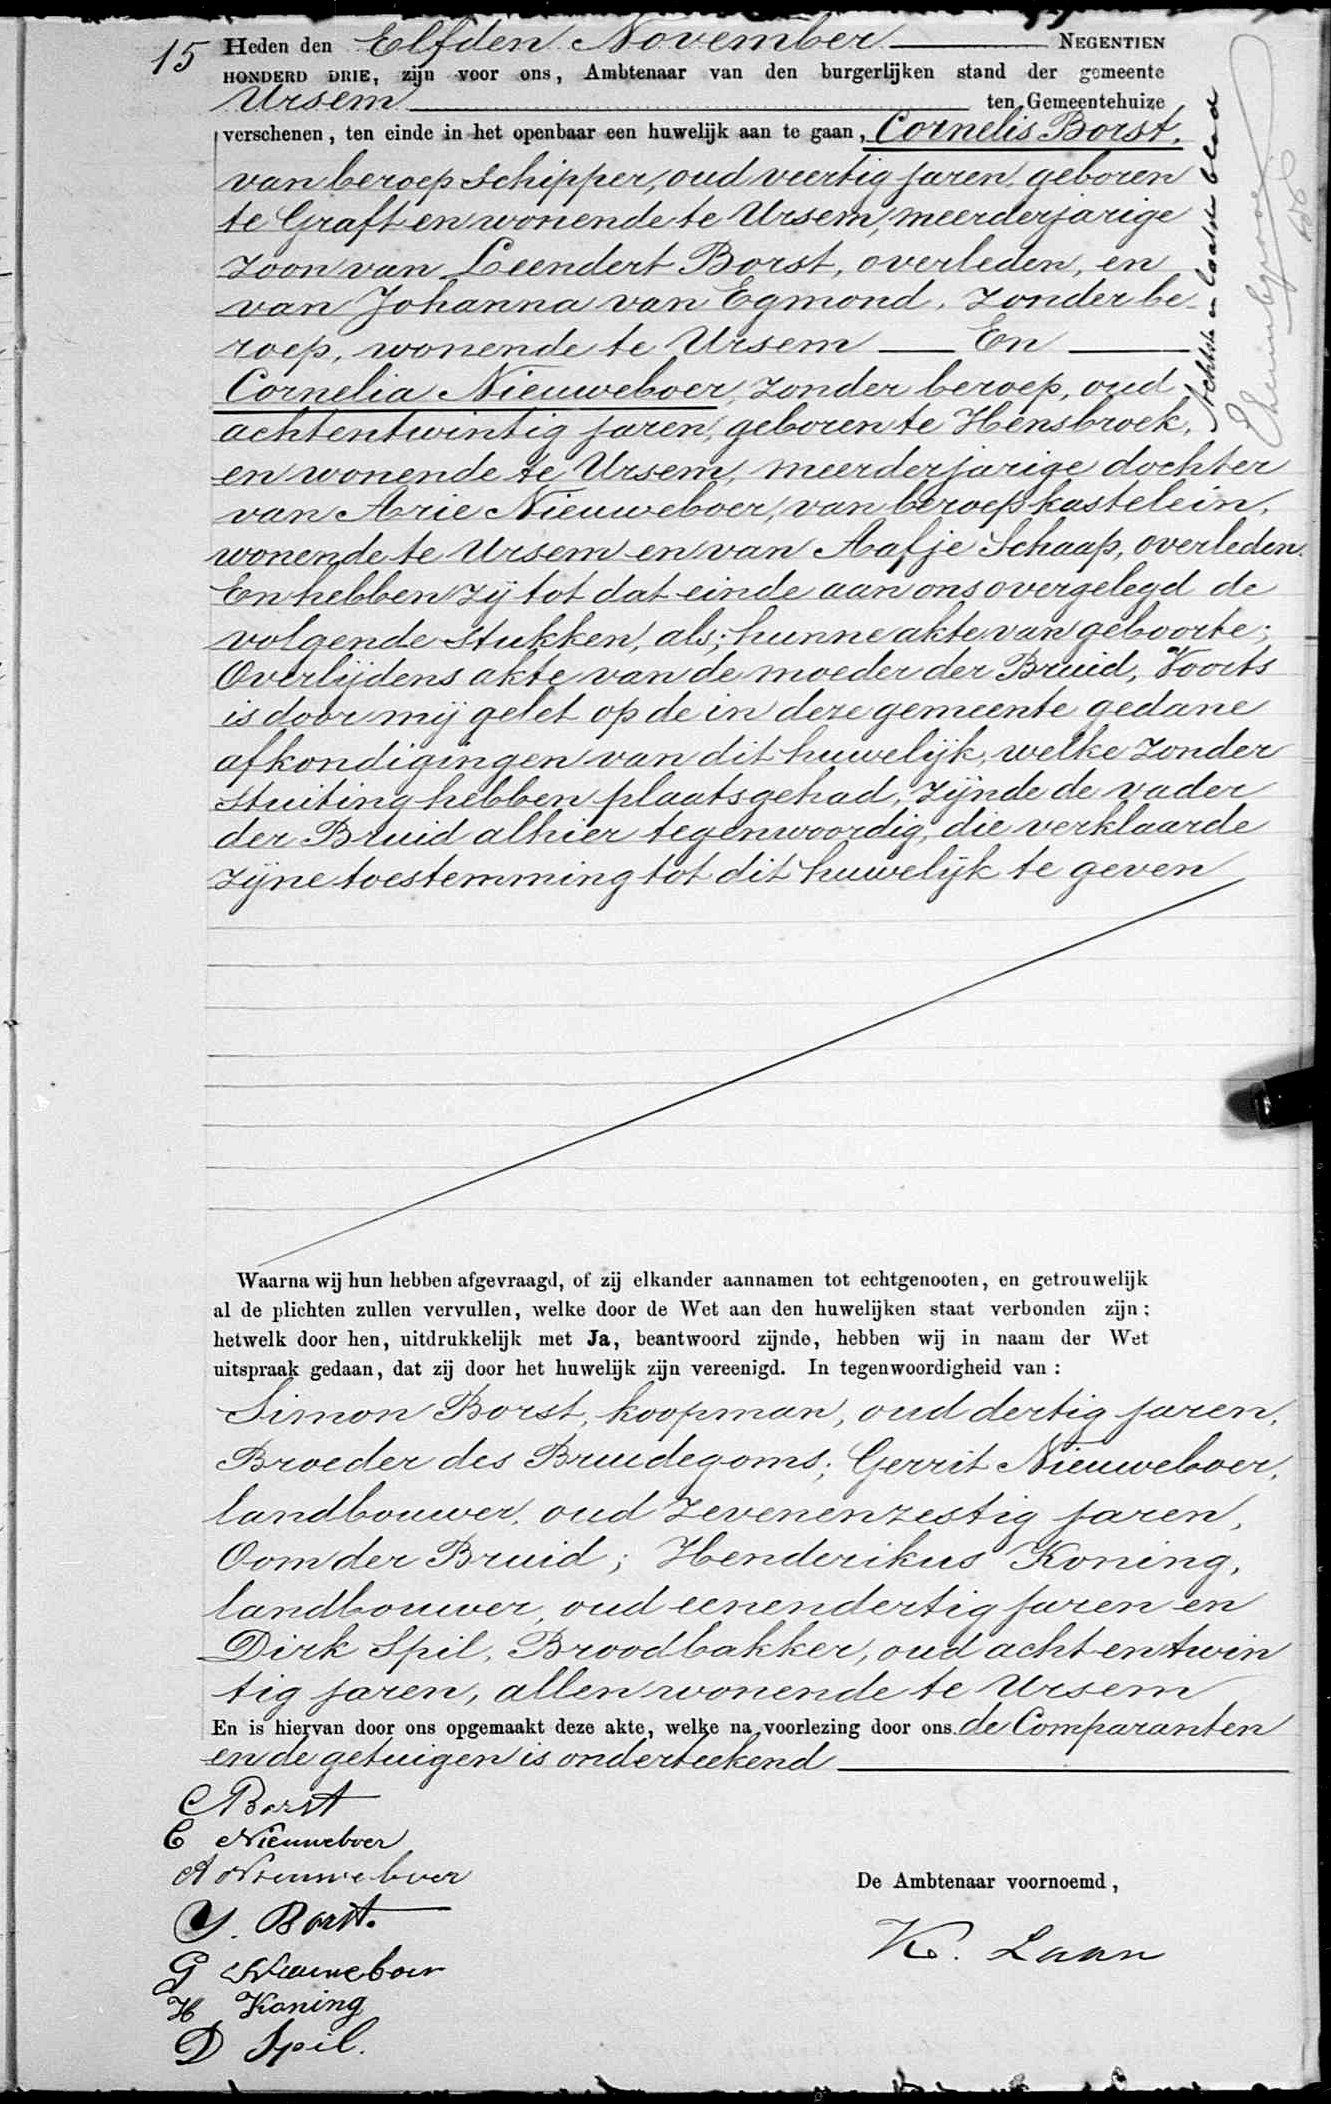 15 Heden den Elfden November NEGENTIEN
HONDERD DRIE, zijn voor ons, Ambtenaar van den burgerlijken stand der gemeente
Ursem ten Gemeentehuize
verschenen, ten einde in het openbaar een huwelijk aan te gaan, Cornelis Borst,
van beroep schipper, oud veertig jaren, geboren
te Graft en wonende te Ursem, meerderjarige
zoon van Leendert Borst, overleden, en
van Johanna van Egmond, zonder be-
roep, wonende te Ursem — En —
Cornelia Nieuweboer, zonder beroep, oud
achtentwintig jaren, geboren te Hensbroek,
en wonende te Ursem, meerderjarige dochter
van Arie Nieuweboer, van beroep kastelein,
wonende te Ursem en van Aafje Schaap, overleden.
En hebben zij tot dat einde aan ons overgelegd de
volgende stukken, als; hunne akte van geboorte;
Overlijdens akte van de moeder der Bruid, Voorts
is door mij gelet op de in deze gemeente gedane
afkondigingen van dit huwelijk, welke zonder
stuiting hebben plaats gehad, zijnde de vader
der Bruid alhier tegenwoordig, die verklaarde
zijne toestemming tot dit huwelijk te geven
Achtste en laatste blad
Waarna wij hun hebben afgevraagd, of zij elkander aannamen tot echtgenooten, en getrouwelijk
al de plichten zullen vervullen, welke door de Wet aan den huwelijken staat verbonden zijn:
hetwelk door hen, uitdrukkelijk met Ja, beantwoord zijnde, hebben wij in naam der Wet
uitspraak gedaan, dat zij door het huwelijk zijn vereenigd. In tegenwoordigheid van:
Simon Borst, koopman, oud dertig jaren,
Broeder des Bruidegoms; Gerrit Nieuweboer,
landbouwer, oud zevenenzestig jaren,
Oom der Bruid; Henderikus Koning,
landbouwer, oud eenendertig jaren en
Dirk Spil, Broodbakker, oud achtentwin
tig jaren, allen wonende te Ursem
En is hiervan door ons opgemaakt deze akte, welke na voorlezing door ons. de Comparanten
en de getuigen is onderteekend
C Borst
C Nieuweboer
A Nieuweboer
S. Borst.
G Nieuweboer
H Koning
D Spil.
De Ambtenaar voornoemd,
K. Laan